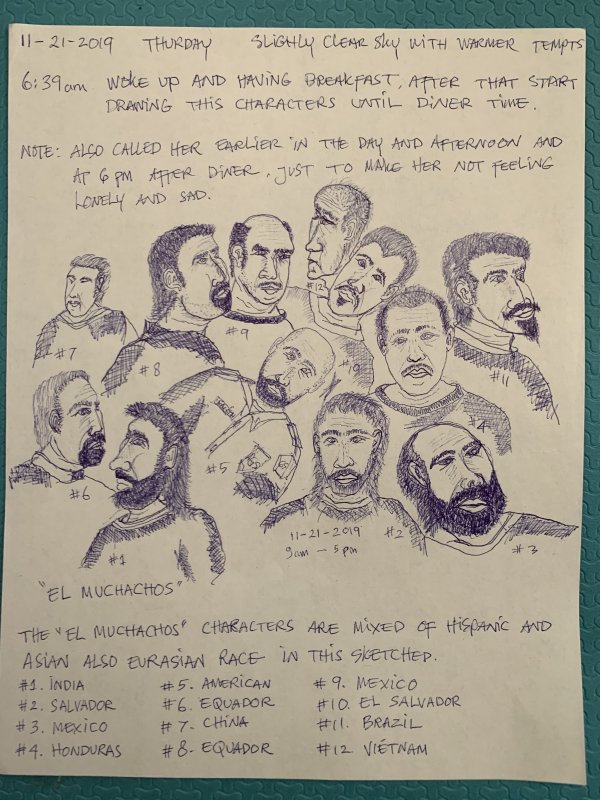 11-21-2019 THURDAY SLIGHLY CLEAR SKY WITH WARMER TEMPTS
6:39am WOKE UP AND HAVING BREAKFAST, AFTER THAT START
DRAWING THIS CHARACTERS UNTIL DINER TIME.
NOTE: ALSO CALLED HER EARLIER IN THE DAY AND AFTERNOON AND
AT 6 PM AFTER DINER, JUST TO MAKE HER NOT FEELING
LONELY AND SAD.
#12
#7
#8
#9
#10
#11
#4
#6
#5
#1
11-21-2019 #2
9am - 5pm
#3
"EL MUCHACHOS"
THE "EL MUCHACHOS" CHARACTERS ARE MIXED OF HISPANIC AND
ASIAN ALSO EURASIAN RACE IN THIS SKETCHED.
#1. INDIA #5. AMERICAN #9. MEXICO
#2. SALVADOR #6. EQUADOR #10. EL SALVADOR
#3. MEXICO #7. CHINA #11. BRAZIL
#4. HONDURAS #8. EQUADOR #12. VIETNAM